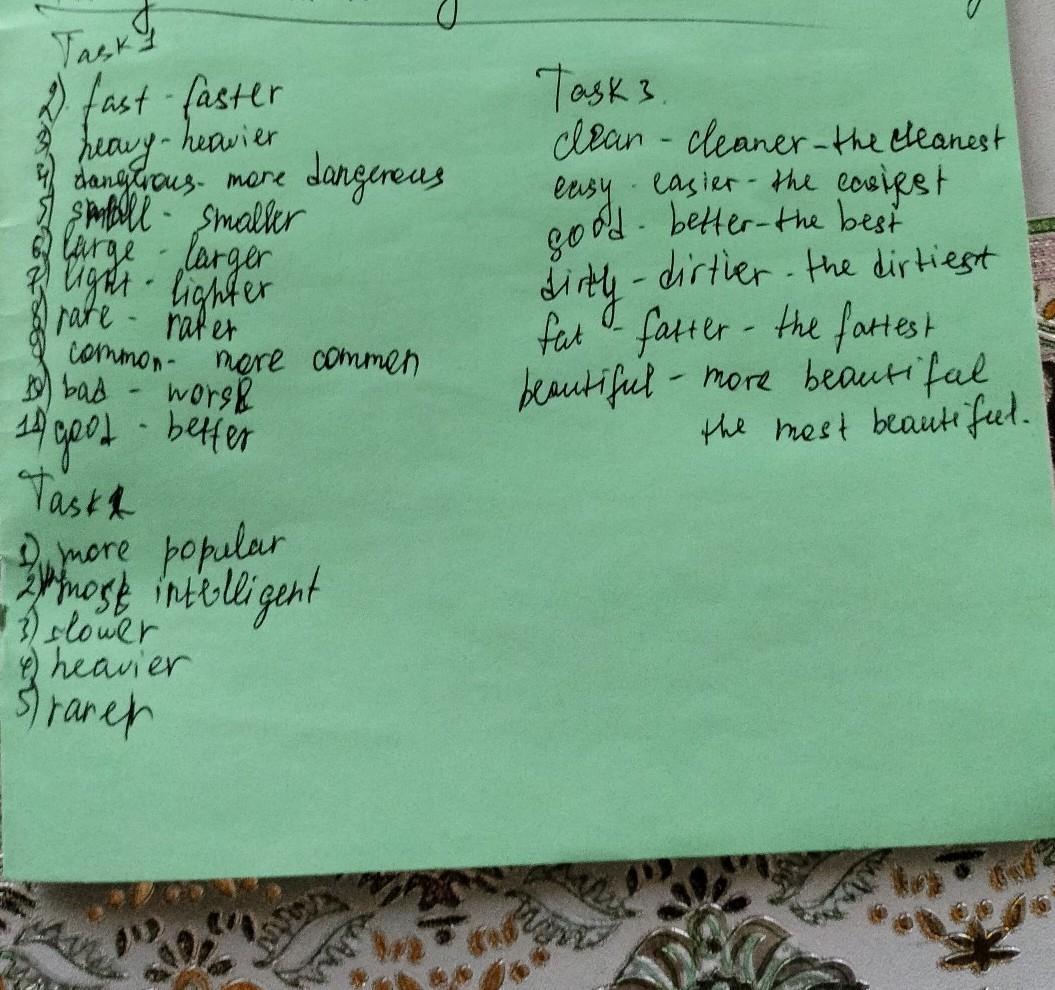 Task 1
2) fast - faster
3) heavy - heavier
4) dangerous - more dangereus
5) small - smaller
6) large - larger
7) light - lighter
8) rare - rarer
9 common - more common
10) bad - worse
11) good - better
Task 2
1) more popular
2) most intelligent
3) slower
4) heavier
5) rarer
Task 3.
clean - cleaner - the cleanest
easy - easier - the easiest
good - better - the best
dirty - dirtier - the dirtiest
fat - fatter - the fattest
beautiful - more beautiful
the most beautiful.